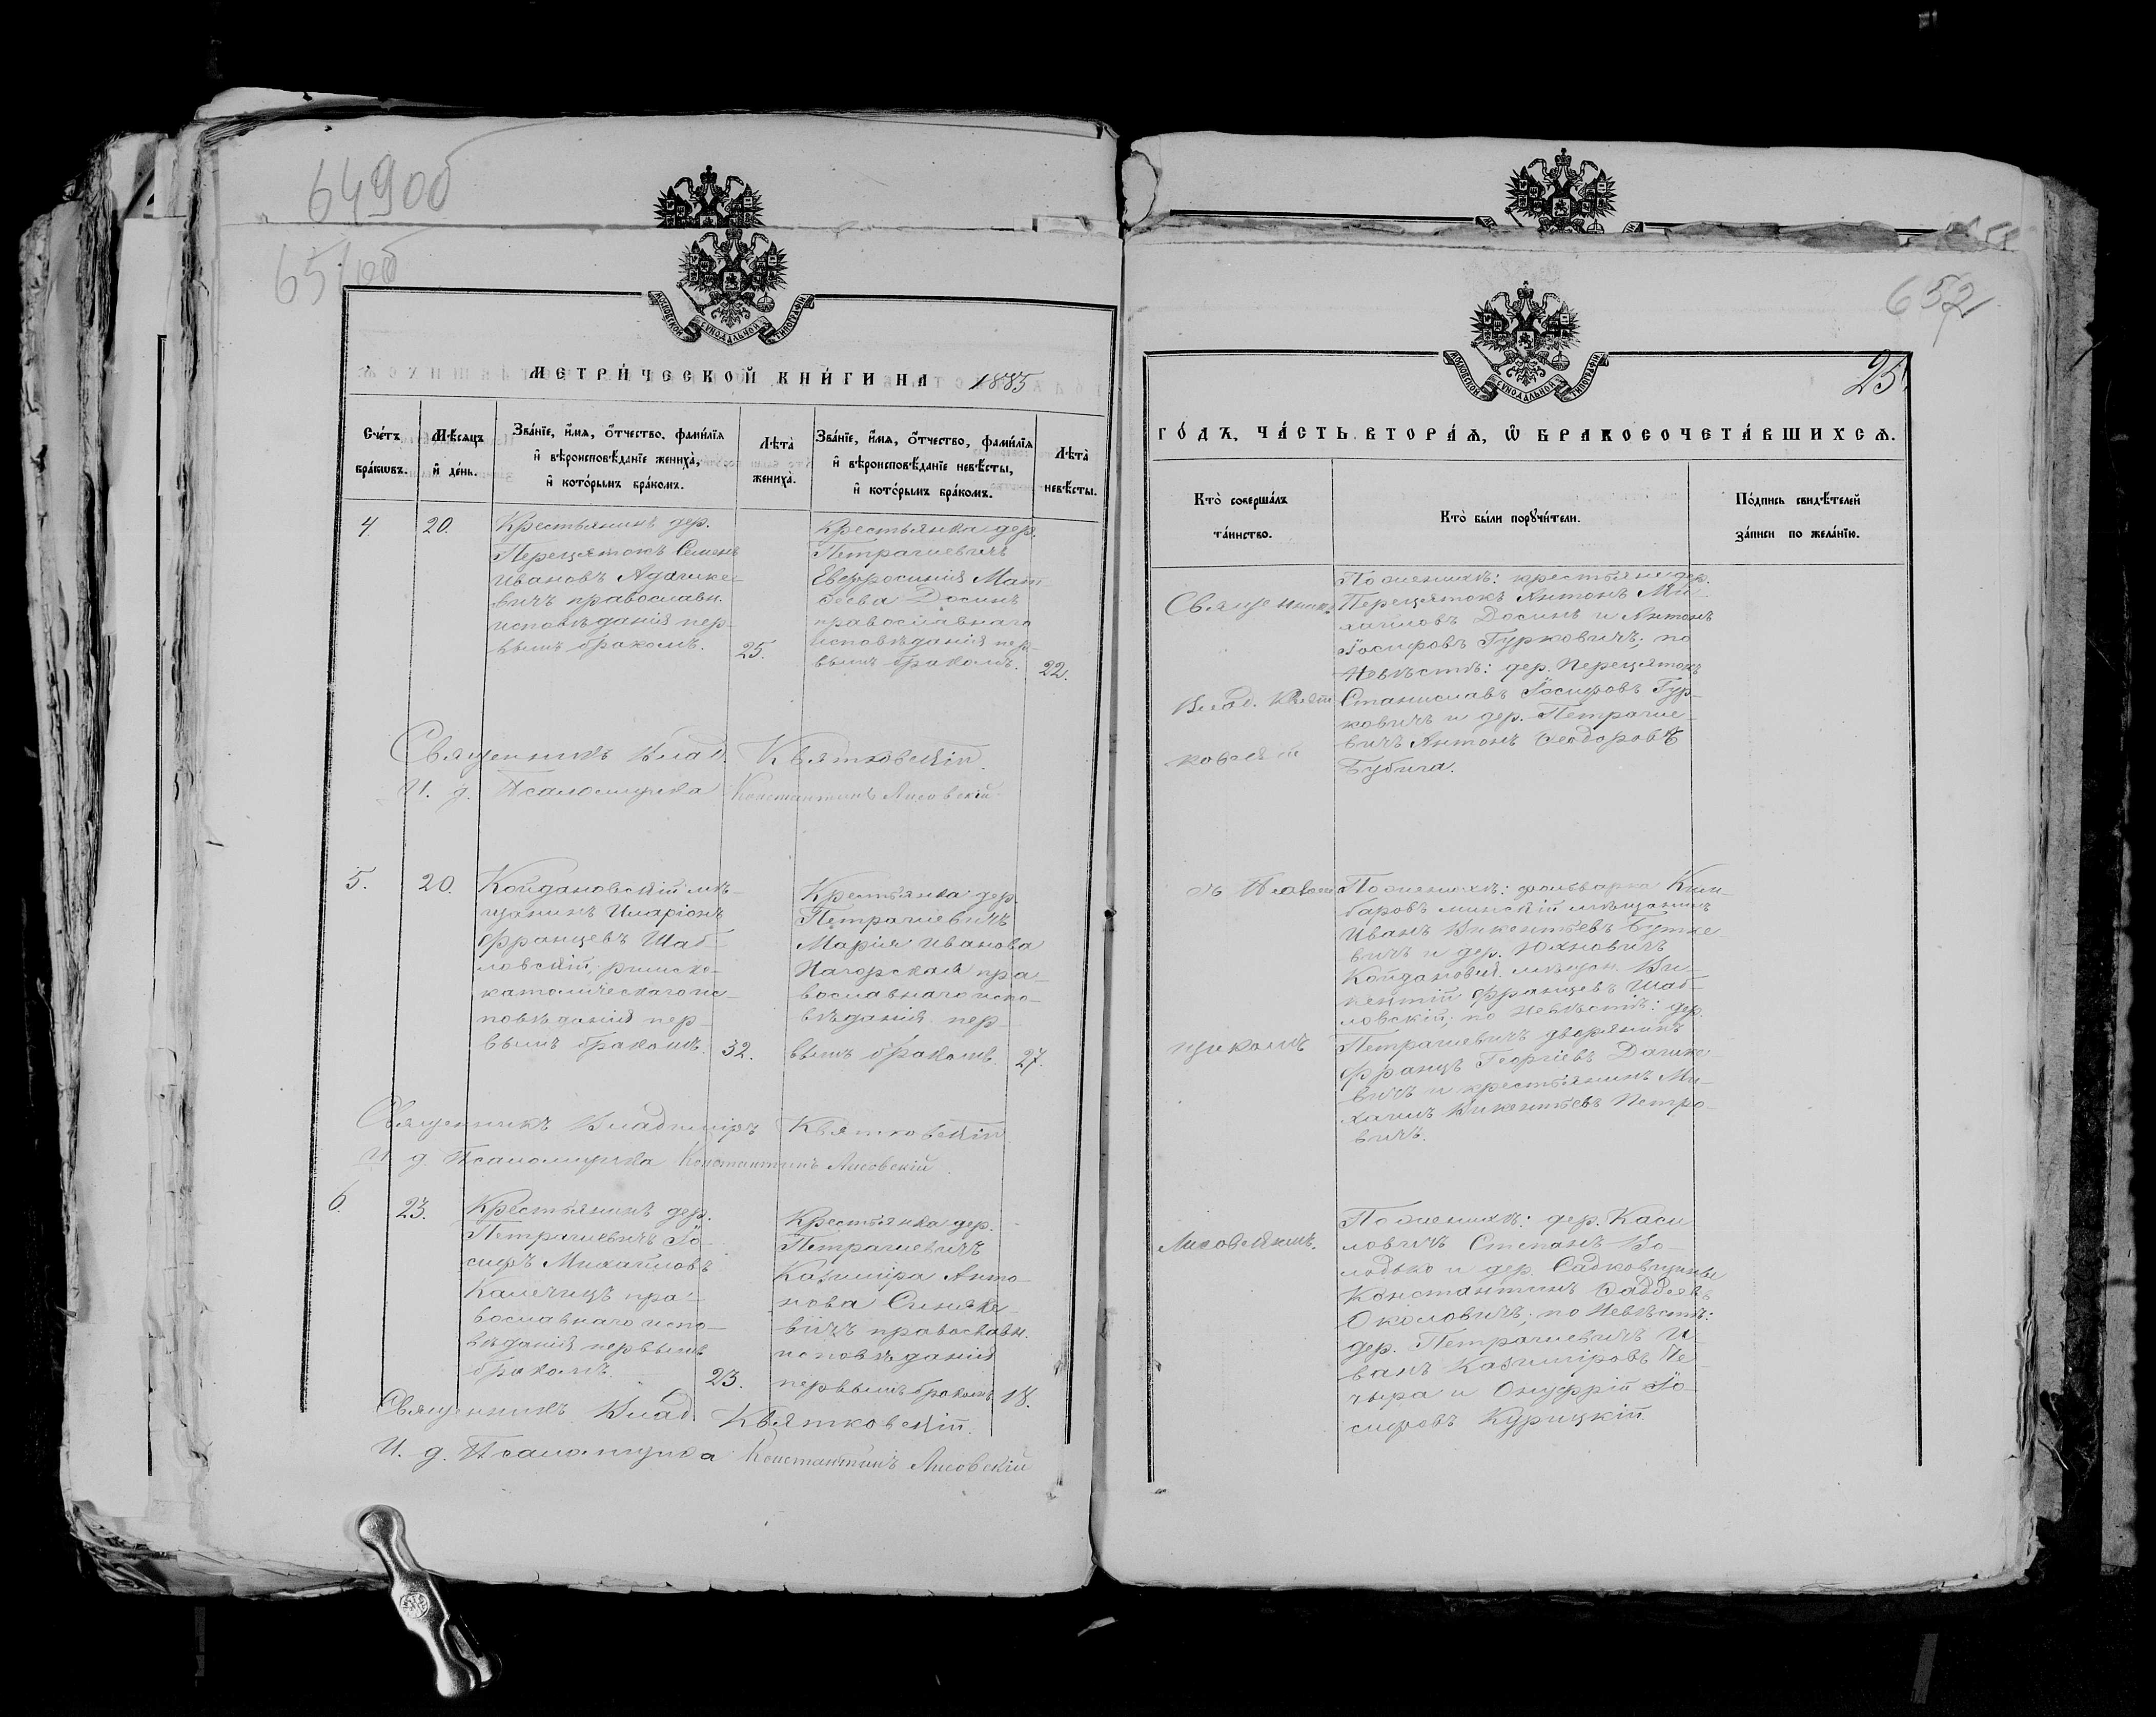 649об
651об
МОСКОВСКОЙ СѴНОДАЛЬНОЙ ТИПОГРАФІИ
МЕТРИ́ЧЕСКОЙ КНИ́ГИ НА 1885
Сче́тъ бра́кѡвъ.
Мѣ́сяцъ и҆ де́нь.
Зва́нїе, и҆́мя, ѻ҆́тчество, фами́лїя и҆ вѣроисповѣ́данїе жениха̀, и҆ кото́рымъ бра́комъ.
Лѣта̀ жениха̀.
Зва́нїе, и҆́мя, ѻ҆́тчество, фами́лїя и҆ вѣроисповѣ́данїе невѣ́сты, и҆ кото́рымъ бра́комъ.
Лѣта̀ невѣ́сты.
4.
20.
Крестьянинъ дер.
Перецятокъ Семенъ
Ивановъ Адашке-
вичъ православн.
исповѣданія пер-
вымъ бракомъ.
25.
Крестьянка дер.
Петрашевичъ
Евфросинія Мат-
ѳеева Досинъ
православнаго
исповѣданія пер-
вымъ бракомъ.
22.
Священникъ Влад. Квятковскій.
И. д. Псаломщика Константинъ Лисовскій
5.
20.
Койдановскій мѣ-
щанинъ Иларіонъ
Францевъ Шаб-
ловскій, римско-
католическаго ис-
повѣданія пер-
вымъ бракомъ.
32.
Крестьянка дер.
Петрашевичъ
Марія Иванова
Нагорская пра-
вославнаго испо-
вѣданія пер-
вымъ бракомъ.
27.
Священникъ Владиміръ Квятковскій
И. д. Псаломщика Константинъ Лисовскій.
6.
23.
Крестьянинъ дер.
Петрашевичъ Іо-
сифъ Михайловъ
Калечицъ пра-
вославнаго испо-
вѣданія первымъ
бракомъ.
23.
Крестьянка дер.
Петрашевичъ
Казимира Анто-
нова Синяке-
вичъ православн.
исповѣданія
первымъ бракомъ
18.
Священникъ Влад. Квятковскій.
И. д. Псаломщика Константинъ Лисовскій
652
25.
МОСКОВСКОЙ СѴНОДАЛЬНОЙ ТИПОГРАФІИ
ГО́ДЪ, ЧА́СТЬ ВТОРА́Я, Ѡ҆ БРАКОСОЧЕТА́ВШИХСЯ.
Кто̀ соверша́лъ та́инство.
Кто̀ бы́ли порꙋчи́тели.
По́дпись свидѣ́телей за́писи по жела́нїю.
Священникъ
Влад. Квят-
ковскій
По женихѣ: крестьяне дер.
Перецятокъ Антонъ Ми-
хайловъ Досинъ и Антонъ
Іосифовъ Гурковичъ; по
Невѣстѣ: дер. Перецятокъ
Станиславъ Іосифовъ Гур-
ковичъ и дер. Петраше-
вичъ Антонъ Ѳеодоровъ
Бубича.
съ Псалом-
щикомъ
По женихѣ: фольварка Ким-
баровъ минскій мѣщанинъ
Иванъ Викентьевъ Бутке-
вичъ и дер. Юхновичъ
Койдановск. мѣщан. Ви-
кентій Францевъ Шаб-
ловскій; по Невѣстѣ: дер.
Петрашевичъ дворянинъ
Францъ Георгіевъ Дашке-
вичъ и крестьянинъ Ми-
хаилъ Викентьевъ Петро-
вичъ.
Лисовскимъ.
По женихѣ: дер. Каси-
ловичъ Степанъ Во-
лодько и дер. Садковщины
Константинъ Ѳаддеевъ
Околовичъ; по Невѣстѣ:
дер. Петрашевичъ И-
ванъ Казиміровъ Че-
чыра и Онуфрій Іо-
сифовъ Курицкій